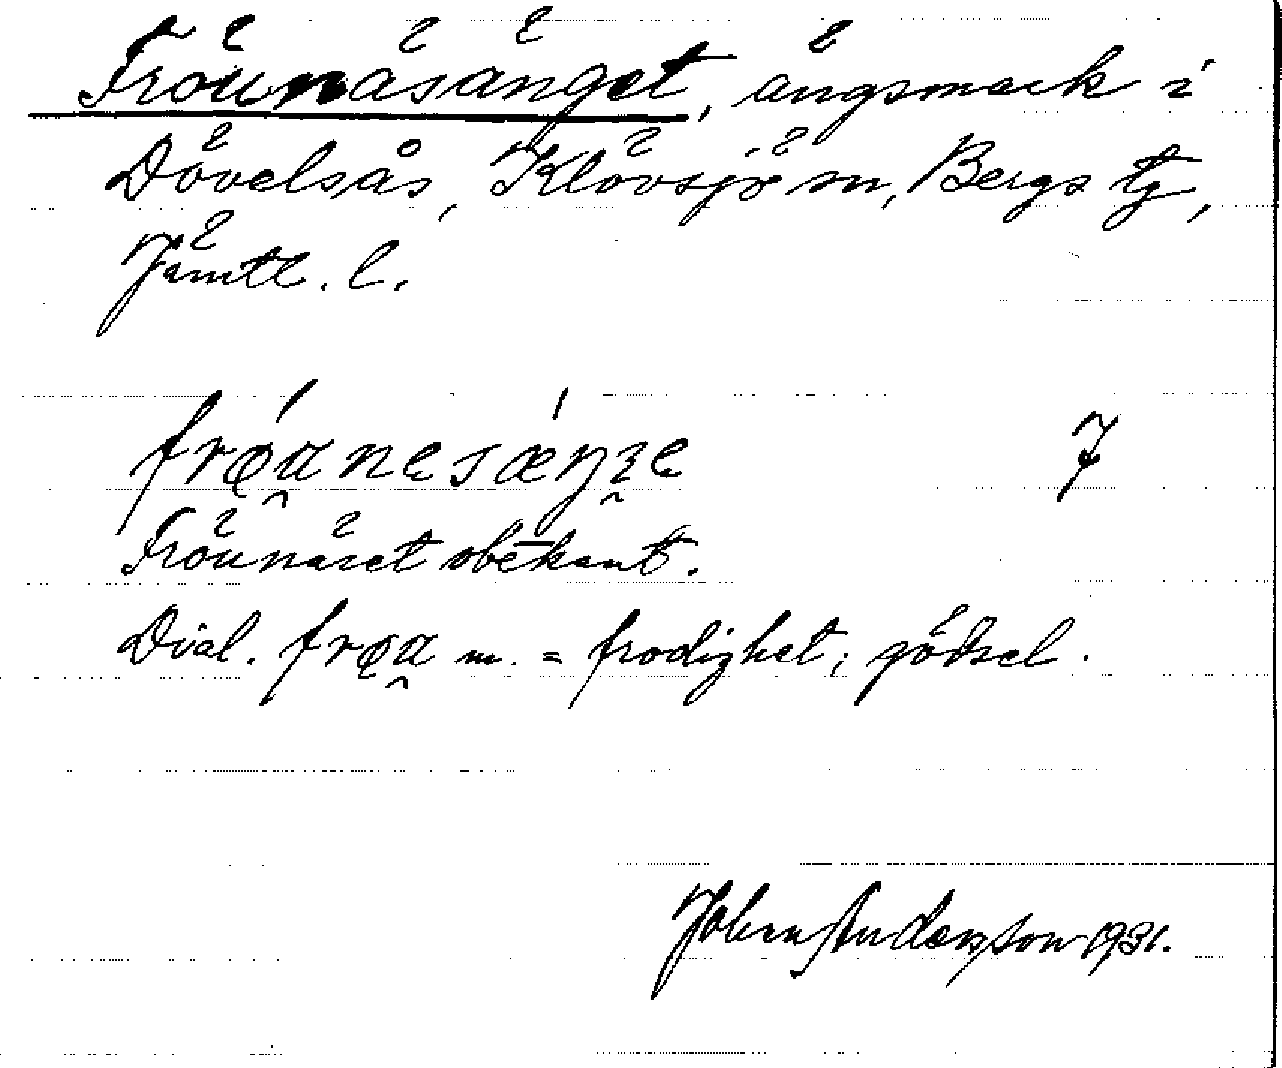 Fröunäsänget, ängsmark i
Dövelsås, Klövsjö sn, Bergs tg,
Jämtl. l.
frøa̯nesæŋɪ̯e 7
Fröunäset obekant.
Dial. frøa̯ m. = frodighet; gödsel.
Johan Andersson 1931.